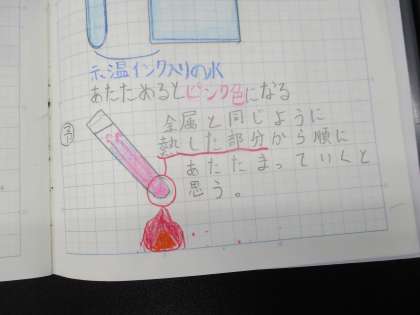 示温インク入りの水
あたためるとピンク色になる
予
金属と同じように
熱した部分から順に
あたたまっていくと
思う。